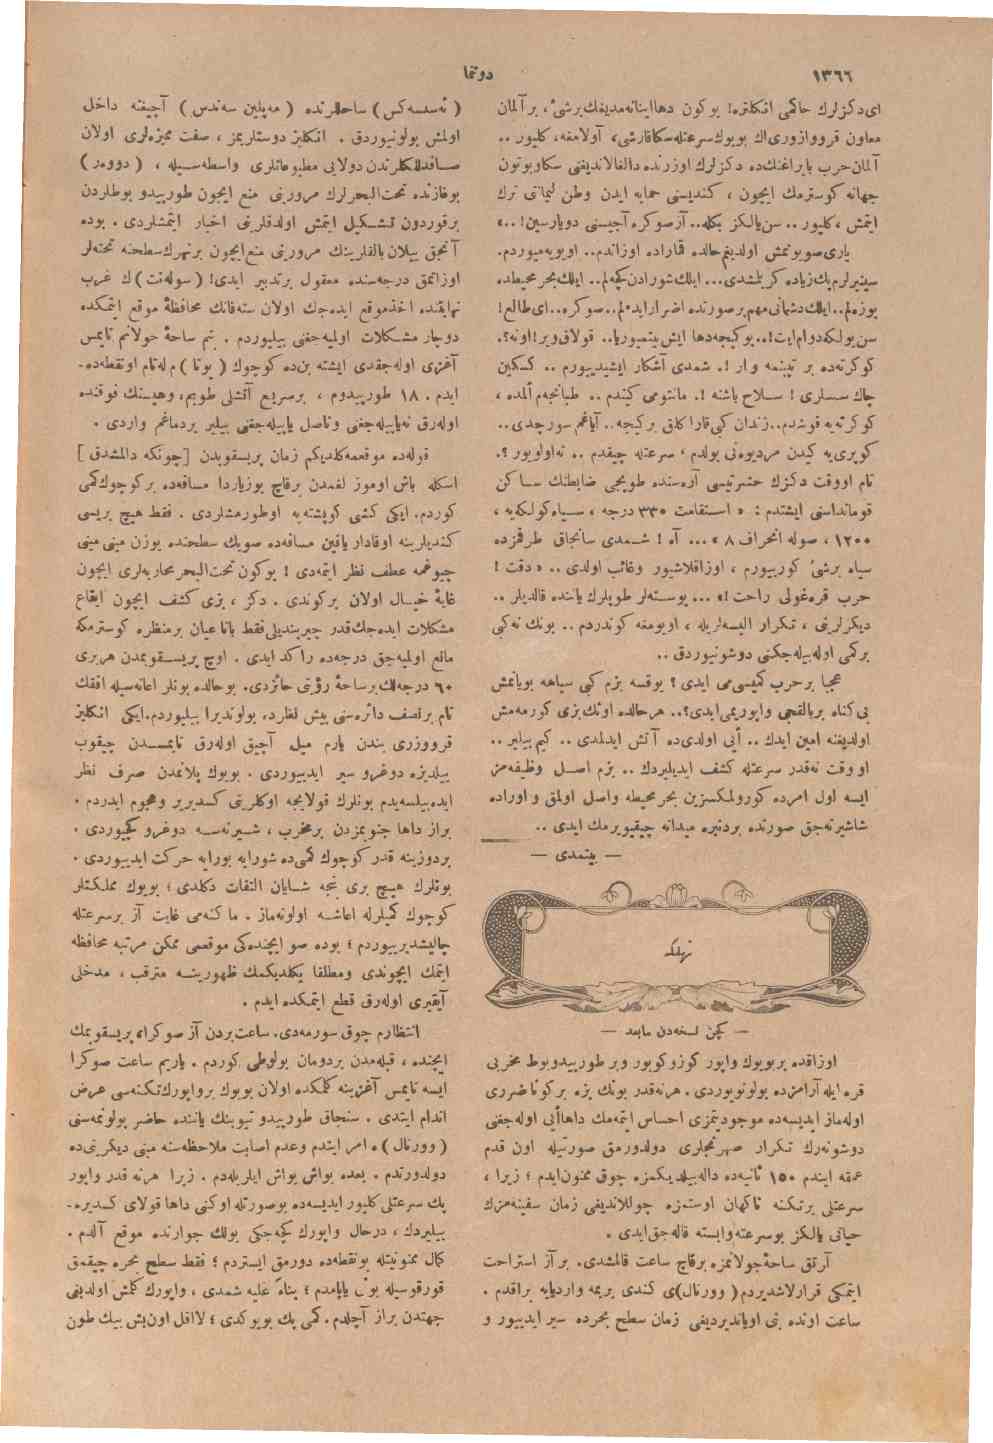 ١٣٦٦
دوتما
ای دكزلرك حاكمی انكلتره! بوكون دها اينانه مديغك برشیٔ، بر آلمان
معاون قرووازوری اك بويوك سرعتله سكا قارشی، آولامغه، كليور ..
آلمان حرب بايراغنك ده دكزلرك اوزرنده دالغالانديغنی سكا و بوتون
جهانه كوسترمك ايچون ، كنديسنی حمايه ايدن وطن ليماننی ترك
ايتمش ، كليور .. سن يالكز بكله.. آز صوكره آجيسنی دويارسين! ..»
ياری صويونمش اولديغم حالده قماراده اوزاندم.. اويويه ميوردم.
سينيرلرم پك زياده كريلمشدی... ايلك شورادن كچه لم.. ايلك بحر محيطده
يوزه لم.. ايلك دشمانی مهم بر صورتده اضرار ايده لم.. صوكره.. ای طالع!
سن يولكه دوام ايت!.. بو كيجه دها ايش بيتميور يا.. قولاق وير! او نه؟.
كوكرته ده بر تپينمه وار !. شمدی آشكار ايشيديیورم .. كسكين
چاك سسلری ! سلاح باشنه !. مانتومی كيندم .. طبانجه م آلمده ،
كوكرته يه قوشدم.. زندان كبی قاراكلق بر كيجه.. آياغم سورچدی..
كوپری يه كيدن مرديوه نی بولدم ، سرعتله چيقدم .. نه اولويور ؟.
تام او وقت دكزك خشرتيسی آره سنده طوپجی ضابطنك ساكن
قومانداسنی ايشتدم : « استقامت ٣٣٠ درجه ، سياه كولكه يه ،
١٢٠٠ ، صوله انحراف ٨ » ... آه ! شمدی سانجاق طرفمزده
سياه برشیٔ كوريیورم ، اوزاقلاشيور وغائب اولدی .. « دقت !
حرب قره غولی راحت !» ... يوسته لر طوپلرك ياننده قالديلر ..
ديكرلرينی ، تكرار البسه لريله ، اويومغه كوندردم .. بونك نه كبی
بركمی اوله بيله جكنی دوشونيوردق ..
عجبا بر حرب كميسی می ايدی ؟ يوقسه بزم كبی سياهه بويانمش
بی كناه بر بالقجی واپوری می ايدی؟.. هر حالده اونك بزی كورمه مش
اولديغنه امين ايدك .. أيی اولدی ده آتش ايدلمدی .. كيم بيلير ..
او وقت نه قدر سرعتله كشف ايديليردك .. بزم اصل وظيفه مز
ايسه اول امرده كورولمكسزين بحر محيطه واصل اولمق و اوراده
شاشيرته جق صورتده بردنبره ميدانه چيقيويرمك ايدی ..
— بيتمدی —
تهلكه
— كچن نسخه دن مابعد —
اوزاقده بر بويوك واپور كوزوكويور و بر طورپيدوبوط مخربی
قره ايله آرامزده بولونويوردی . هر نه قدر بونك بزه بركونا ضرری
اوله ماز ايديسه ده موجوديتمزی احساس ايتمه مك داها أيی اوله جغنی
دوشونه رك تكرار صهرنجلری دولدورمق صورتيله اون قدم
عمقه ايندم ١٥٠ ثانيه ده داله بيلديكمزه چوق ممنون ايدم ؛ زيرا ،
سرعتلی برتكنه ناكهان اوستمزه چوللانديغی زمان سفينه مزك
حياتی يالكز بو سرعته وابسته قاله جق ايدی .
آرتق ساحهٔ جولانمزه برقاچ ساعت قالمشدی. بر آز استراحت
ايتمكی قرارلاشديردم ( وورنال)ی كندی يريمه وارديايه براقدم .
ساعت اونده بنی اوياندیرديغی زمان سطح بحرده سير ايديیور و
( ئه سسه كس ) ساحللرنده ( مه پلين سه ندس ) آچيغنه داخل
اولمش بولونيوردق . انكليز دوستلريمز ، صفت مميزه لری اولان
صافدللكلرندن دولايی مطبوعاتلری واسطه سيله ، ( دووه ر )
بوغازنده تحت البحرلرك مرورينی منع ايچون طورپيدو بوطلردن
برقوردون تشكيل ايتمش اولدقلرينی اخبار ايتمشلردی . بوده
آنجق ييلان بالقلرينك مرورينی منع ايچون بر نهرك سطحنه تخته لر
اوزاتمق درجه سنده معقول بر تدبير ايدی! ( سوله نت ) ك غرب
نهايتنده اخذ موقع ايده جك اولان سته فانك محافظهٔ موقع ايتمكده
دوچار مشكلات اوليه جغنی بيليوردم . بنم ساحهٔ جولانم تايمس
آغزی اوله جقدی ايشته بن ده كوچوك ( يوتا ) م له تام او نقطه ده-
ايدم . ١٨ طورپيدوم ، بر سريع آتشلی طوپم، وهپسنك فوقنده
اوله رق نه ياپيله جغنی و ناصل ياپيله جغنی بيلير بر دماغم واردی .
قوله ده موقعمه كلديكم زمان پريسقوپدن [چونكه دالمشدق ]
اسكله باش اوموز لغمدن برقاچ يوز ياردا مسافه ده بر كوچوك كمی
كوردم. ايكی كشی كوپشته يه اوطورمشلردی . فقط هيچ بريسی
كنديلرينه او قادار ياقين مسافه ده صويك سطحنده يوزن مينی مينی
چيوغمه عطف نظر ايتمه دی ! بوكون تحت البحر محاربه لری ايچون
غايهٔ خيال اولان بر كوندی . دكز ، بزی كشف ايچون ايقاع
مشكلات ايده جك قدر چيرپنديلی فقط بانا عيان بر منظره كوسترمكه
مانع اوليه جق درجه ده راكد ايدی . اوچ پريسقوپمدن هر بری
٦٠ درجه لك بر ساحهٔ رؤيتی حائزدی. بو حالده بونلر اعانه سيله افقك
تام برنصف دائره سنی پيش نظارده بولوندیرا بيليوردم. ايكی انكليز
قرووزری بندن يارم ميل آچيق اوله رق تايمسدن چيقوب
ييلديزه دوغرو سير ايديیوردی . بويوك پلانمدن صرف نظر
ايده بيلسه يدم بونلرك قولايجه اوكلرينی كسديرير وهجوم ايدردم .
براز داها جنوبمزدن بر مخرب ، شيرنه سه دوغرو كچيوردی .
بر دوزينه قدر كوچوك كمی ده شورايه بورايه حركت ايديیوردی .
بونلرك هيچ بری بنجه شايان التفات دكلدی ؛ بويوك مملكتلر
كوچوك كميلرله اعاشه اولونه ماز . ماكنه می غايت آز بر سرعتله
چاليشديريیوردم ؛ بوده صو ايچنده كی موقعمی ممكن مرتبه محافظه
ايتمك ايچوندی و مطلقا بكلديكمك ظهورينه مترقب ، مدخلی
آيقيری اوله رق قطع ايتمكده ايدم .
انتظارم چوق سورمه دی. ساعت بردن آز صوكرا، پريسقوپمك
ايچنده ، قبله مدن بر دومان بولوطی كوردم . ياريم ساعت صوكرا
ايسه تايمس آغزينه كلمكده اولان بويوك بر واپورك تكنه سی عرض
اندام ايتدی . سنجاق طورپيدو تيوبنك ياننده حاضر بولونمه سنی
( وورنال ) ه امر ايتدم وعدم اصابت ملاحظه سنه مبنی ديكرينی ده
دولدورتدم . بعده يواش يواش ايلريله دم . زيرا هر نه قدر واپور
پك سرعتلی كليور ايديسه ده بو صورتله اوكنی داها قولای كسديره-
بيليردك ، درحال واپورك كچه جكی يولك جوارنده موقع آلدم .
كمال ممنونيتله بو نقطه ده دورمق ايستردم ؛ فقط سطح بحره چيقمق
قورقوسيله بونی ياپامدم ؛ بناءً عليه شمدی ، واپورك كلمش اولديغی
جهتدن براز آچلدم . كمی پك بويوكدی ؛ لااقل اون بش بيك طون